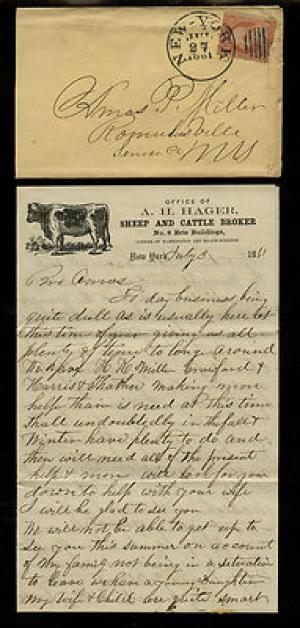 NEW-YORK
JUL
27
1861
Amos P. Miller
Romulusville
Seneca Co NY
OFFICE OF
A. H. HAGER,
SHEEP AND CATTLE BROKER
No. 8 New Buildings,
New York July 3 1861
Bro Amos
To day business being
quite dull as is usually here at
this time of year giving us all
plenty of time to long around
H K Miller Crawford &
Harris & Thather making more
help than is need at this time
shall undoubtedly in the fall &
Winter have plenty to do and
then will need all of the present
help & more will look for you
down to help with your wife
I will be glad to see you
M will not be able to get up to
see you this summer on account
of my family not being in a situation
to leave a young Daughter
My Wife & Child are quite smart